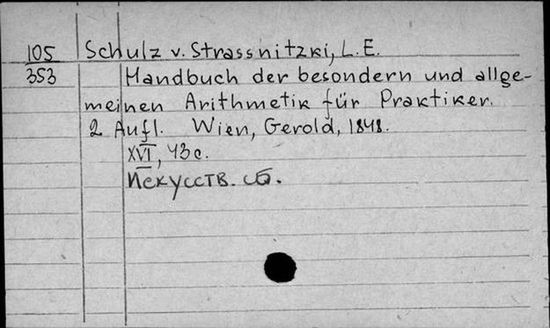 105 Schulz v. Strassnitzki, L.E.
353 Handbuch der besondern und allge-
meinen Arithmetik für Praktiker.
2 Aufl. Wien, Gerold, 1848.
XVI, 43 с.
Искусств. сб.